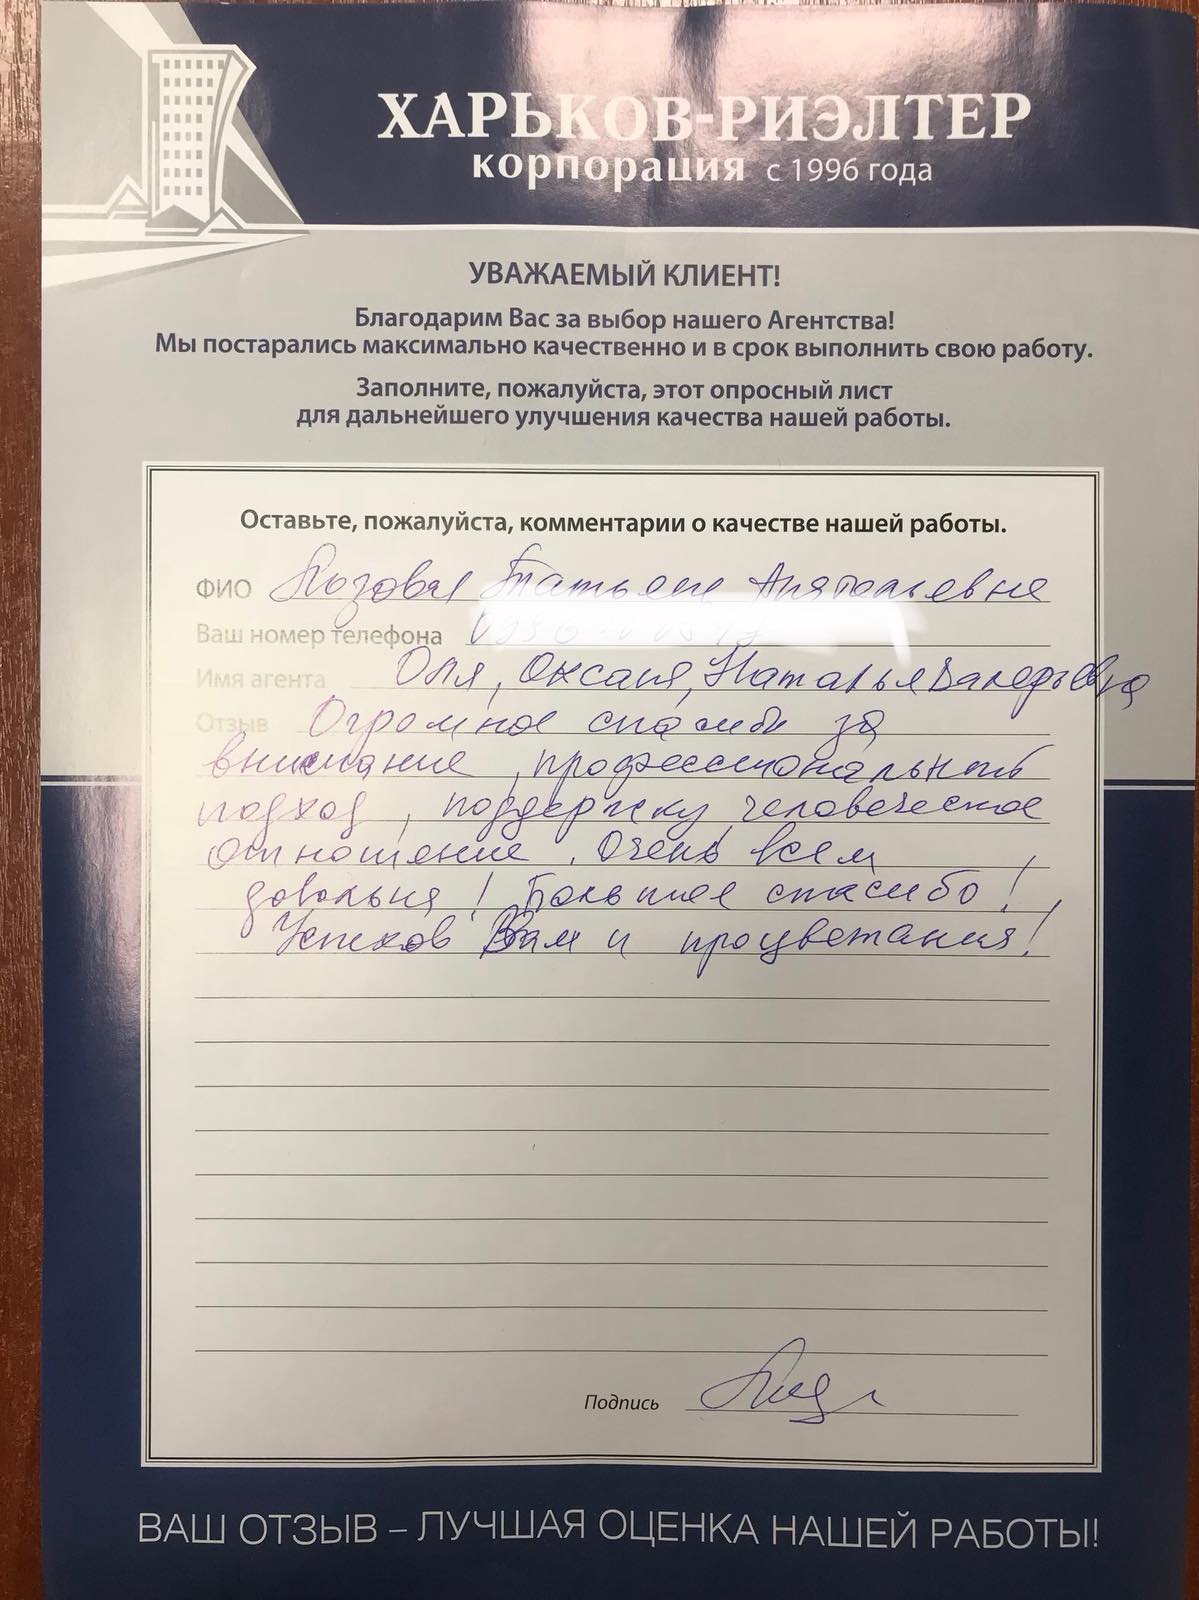 ХАРЬКОВ-РИЭЛТЕР
корпорация с 1996 года
УВАЖАЕМЫЙ КЛИЕНТ!
Благодарим Вас за выбор нашего Агентства!
Мы постарались максимально качественно и в срок выполнить свою работу.
Заполните, пожалуйста, этот опросный лист
для дальнейшего улучшения качества нашей работы.
Оставьте, пожалуйста, комментарии о качестве нашей работы.
ФИО Татьяна Анатольевна
Ваш номер телефона
Имя агента Оля, Оксана, Наталья Валерьевна
Отзыв Огромное спасибо за
внимание, профессиональный
подход, поддержку, человеческое
отношение. Очень всем
довольна! Большое спасибо!
Успехов Вам и процветания!
Подпись
ВАШ ОТЗЫВ – ЛУЧШАЯ ОЦЕНКА НАШЕЙ РАБОТЫ!